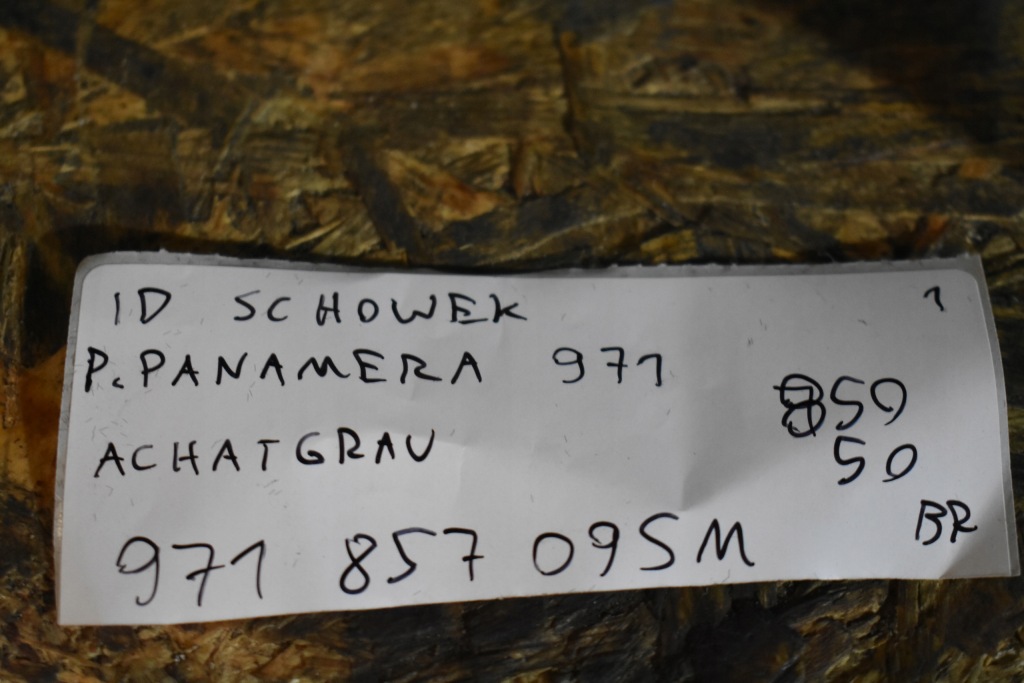 ID SCHOWEK 1
P. PANAMERA 971
850
ACHATGRAU
50
BR
971 857 095M